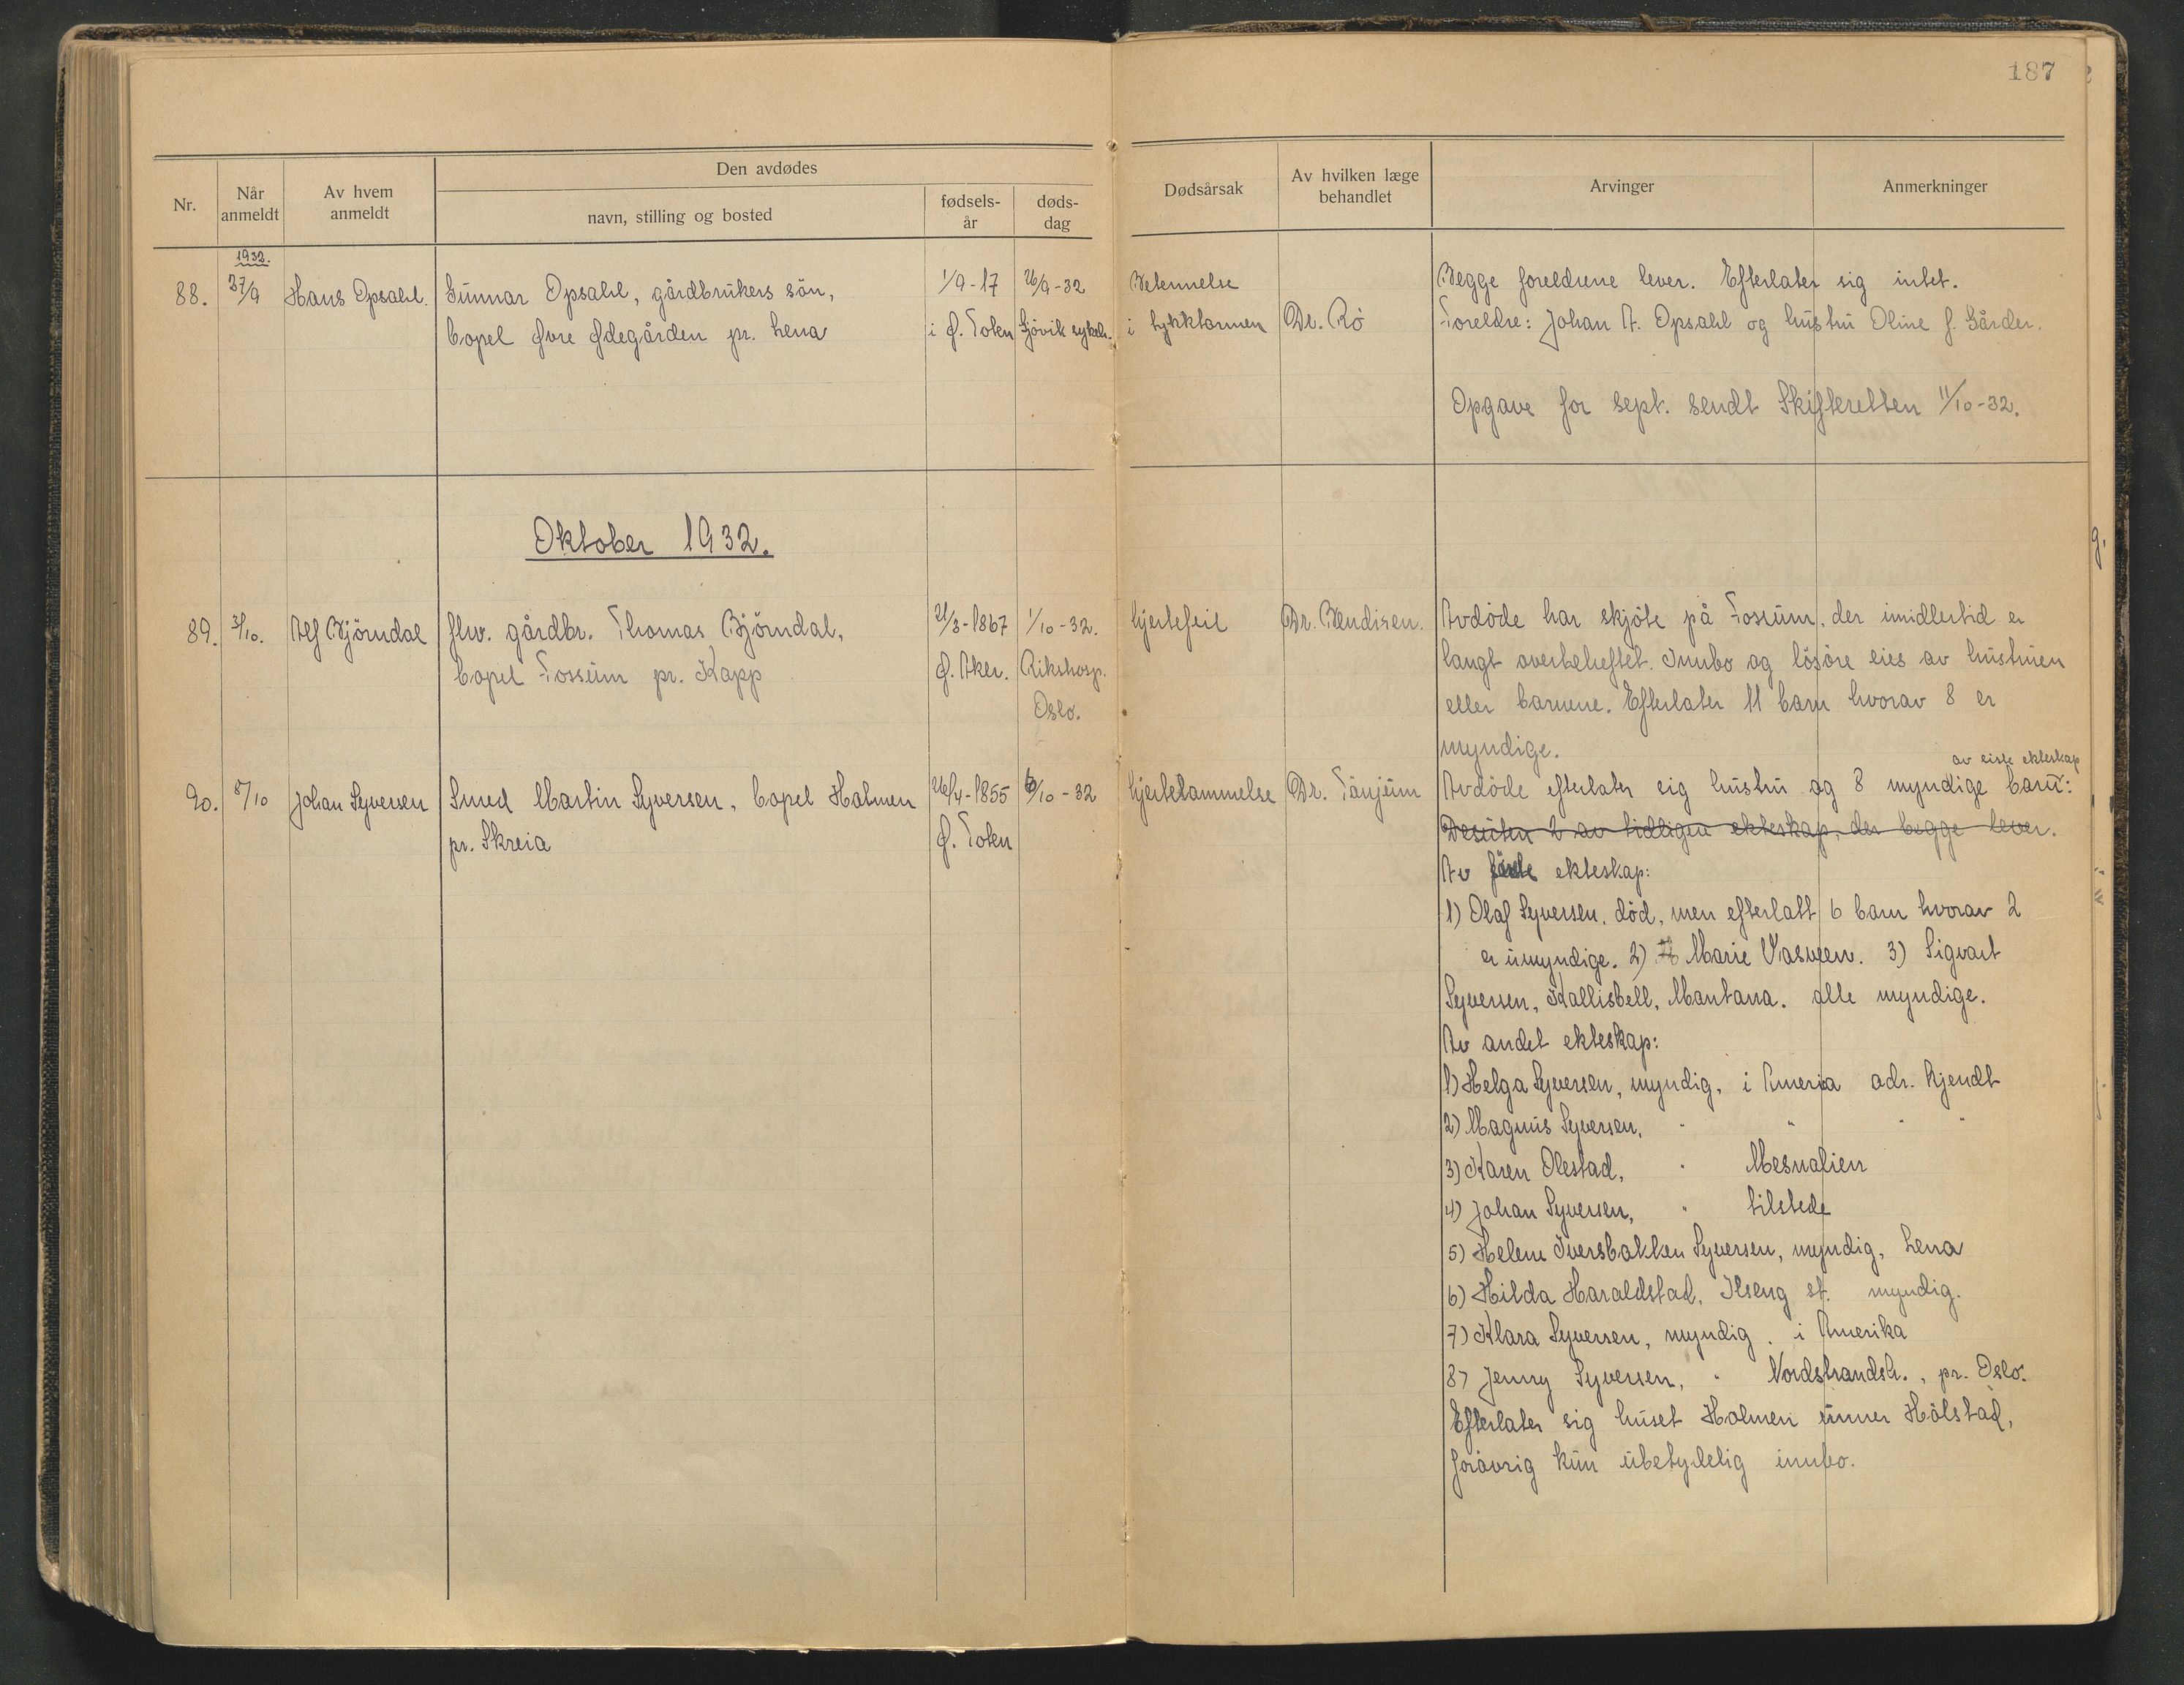 187
Nr.
Når anmeldt
Av hvem anmeldt
Den avdødes
navn, stilling og bosted
fødsels-år
døds-dag
Dødsårsak
Av hvilken læge behandlet
Arvinger
Anmerkninger
1932.
88. 27/9 Hans Opsahl. Gunnar Opsahl, gårdbrukers sön, 1/9-17 26/9-32 Betennelse Begge foreldrene lever. Efterlater sig intet.
bopel Øvre Ødegården pr. Lena i Ø. Toten Gjövik sykeh. i tykktarmen Dr. Rö Foreldre: Johan A. Opsahl og hustru Oline f. Gårder.
Opgave for sept. sendt Skifteretten 11/10-32.
Oktober 1932.
89. 3/10. Alf Björndal fhv. gårdbr. Thomas Björndal, 21/3-1867 1/10-32. hjertefeil Dr. Bendixen. Avdöde har skjöte på Fossum, der imidlertid er
bopel Fossum pr. Kapp Ø. Aker. Rikshosp. langt overbeheftet. Innbo og lösöre eies av hustruen
Oslo. eller barnene. Efterlater 11 barn hvorav 8 er
myndige.
av siste ekteskap
90. 8/10 Johan Syversen Smed Martin Syversen, bopel Holmen 26/4-1855 6/10-32 hjertelammelse Dr. Taujeum Avdöde efterlater sig hustru og 8 myndige barn:
pr. Skreia Ø. Toten Desuten 2 av tidligere ekteskap, der begge lever.
Av förste ekteskap:
1) Olaf Syversen, död, men efterlatt 6 barn hvorav 2
er umyndige. 2) Marie Vasveen. 3) Sigvart
Syversen, Kallisbell, Mantana. alle myndige.
Av andet ekteskap:
1) Helga Syversen, myndig, i Ameria adr. kjendt
2) Magnus Syversen, " " " "
3) Karen Olestad, " Mesnalien
4) Johan Syversen, " tilstede
5) Helene Iversbakken Syversen, myndig, Lena
6) Hilda Haraldstad, Ilseng st. myndig.
7) Klara Syversen, myndig. i Amerika
8) Jenny Syversen, " Nordstrandsh., pr. Oslo.
Efterlater sig huset Holmen unner Hölstad,
foråvrig kun ubetydelig innbo.